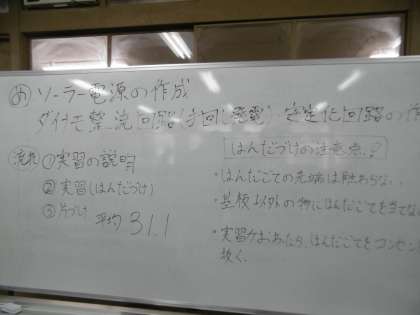 め ソーラー電源の作成
ダイナモ整流回路(手回し発電)・安定化回路の作
流れ ①実習の説明
②実習(はんだづけ)
③片づけ
平均 31.1
はんだづけの注意点!
・はんだごての先端は触らない
・基板以外の物にはんだごてを当てない
・実習がおわったら、はんだごてをコンセン
抜く。